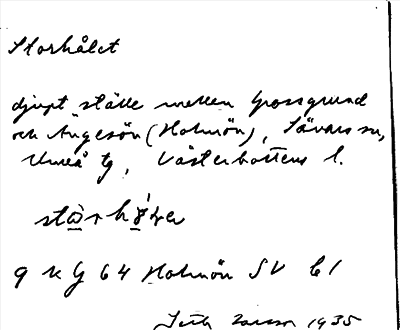 Storhålet
djupt ställe mellan Grossgrund
och Ängesön (Holmön), Sävars sn,
Umeå tg, Västerbottens l.
9 k G 64 Holmön SV b1
1935